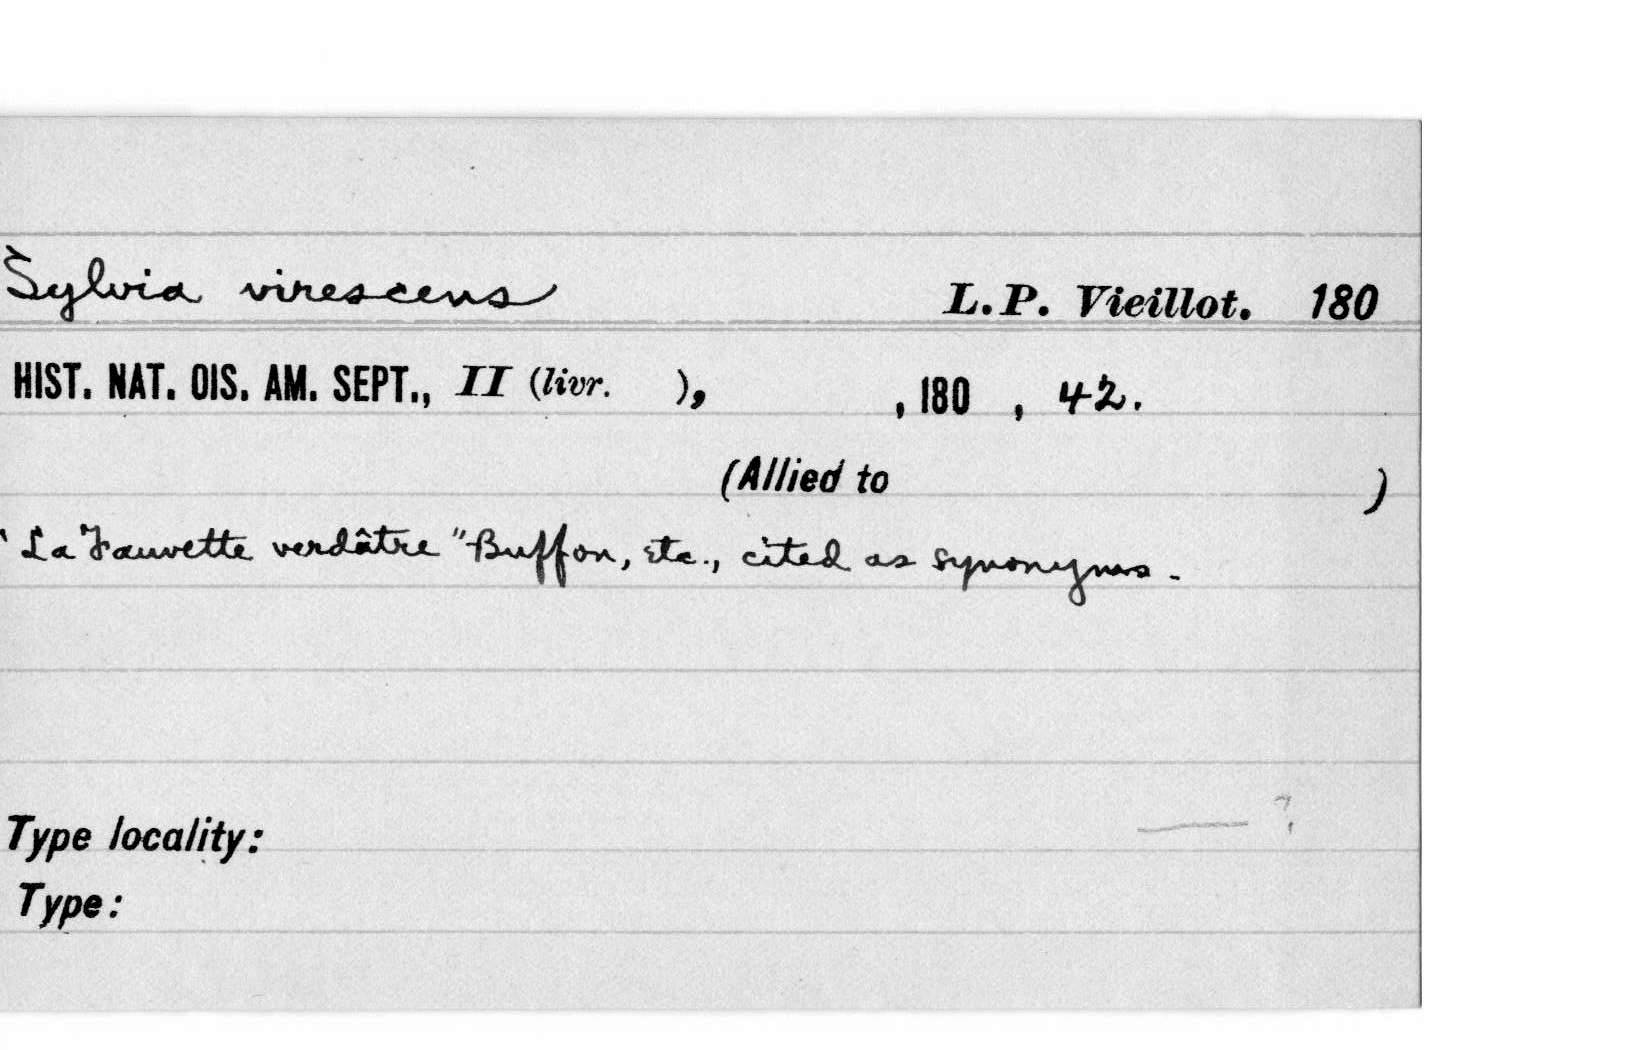 Sylvia virescens L. P. Vieillot. 180
HIST. NAT. OIS. AM. SEPT., II (livr. ), , 180 , 42.
(Allied to )
"La Fauvette verdâtre" Buffon, etc., cited as synonyms.
— ?
Type locality:
Type: